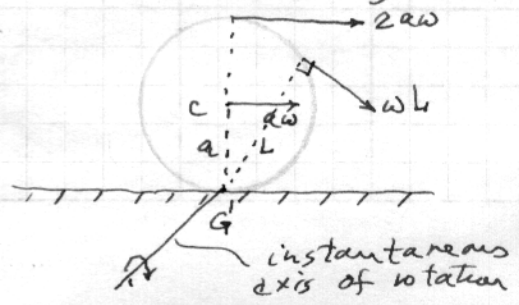 2aω
C
aω
ωL
a
L
G
instantaneous
axis of rotation